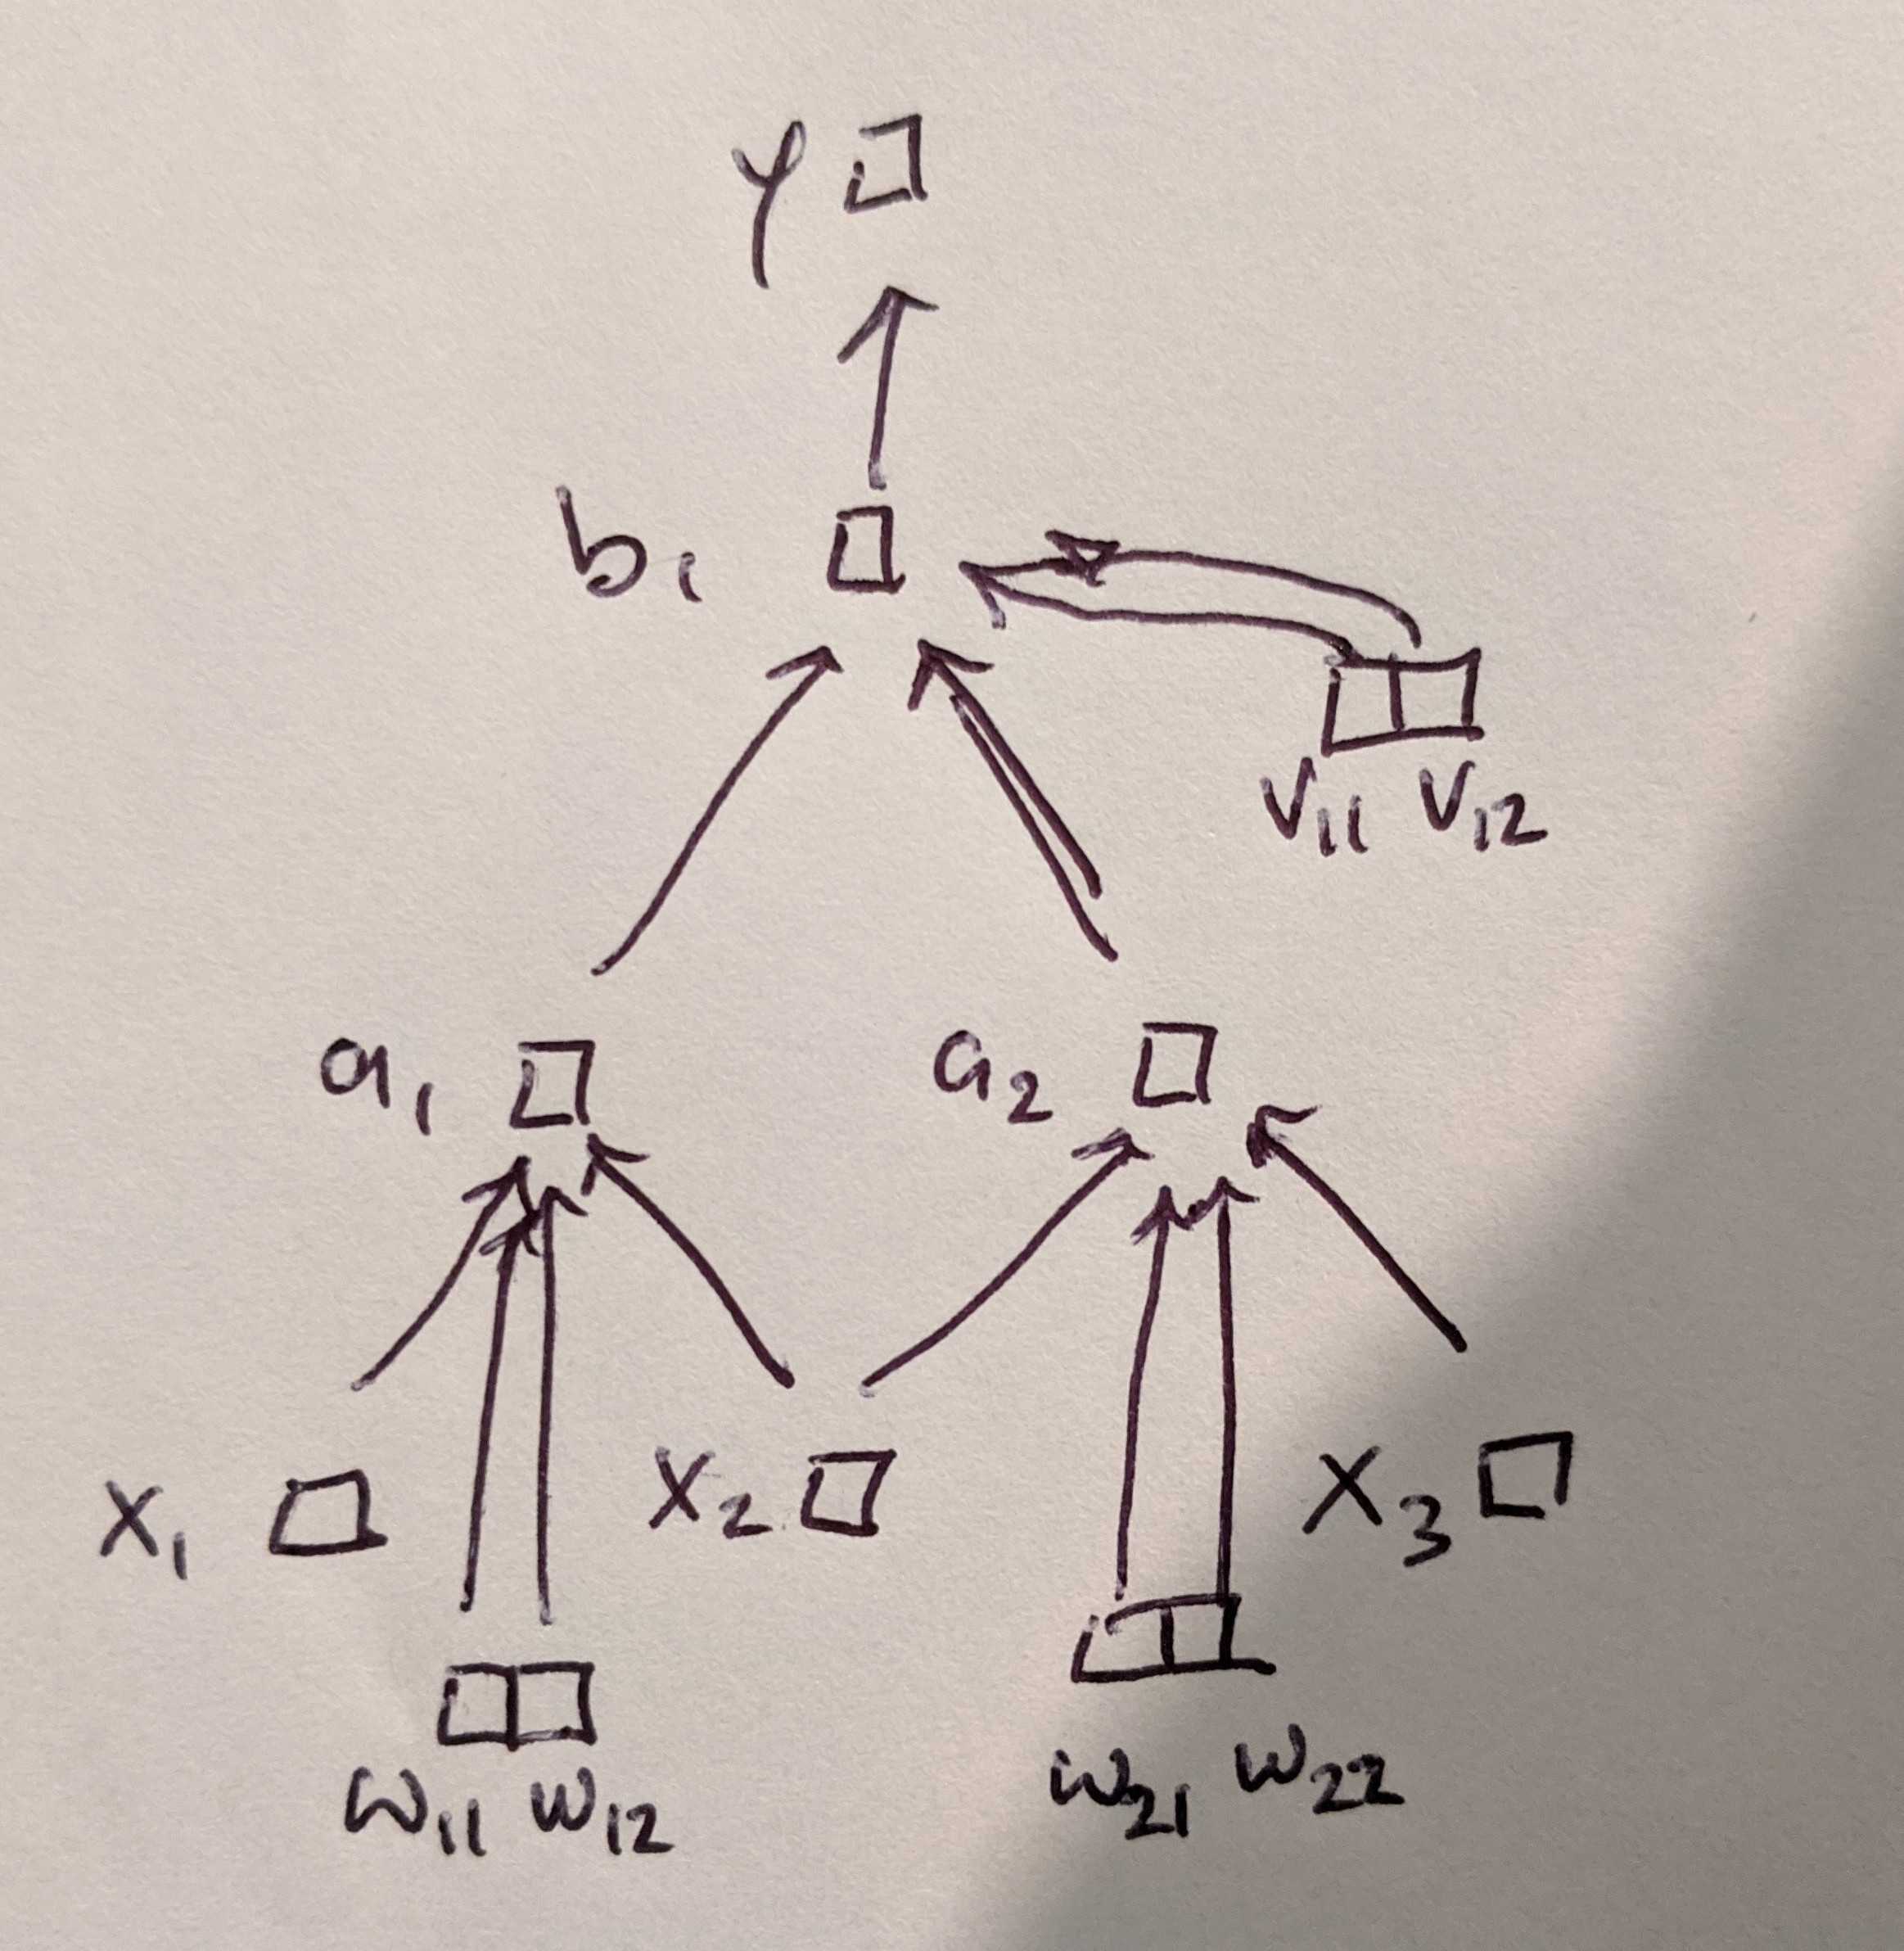 y
b₁
v₁₁ v₁₂
a₁ a₂
x₁ x₂ x₃
w₁₁ w₁₂ w₂₁ w₂₂